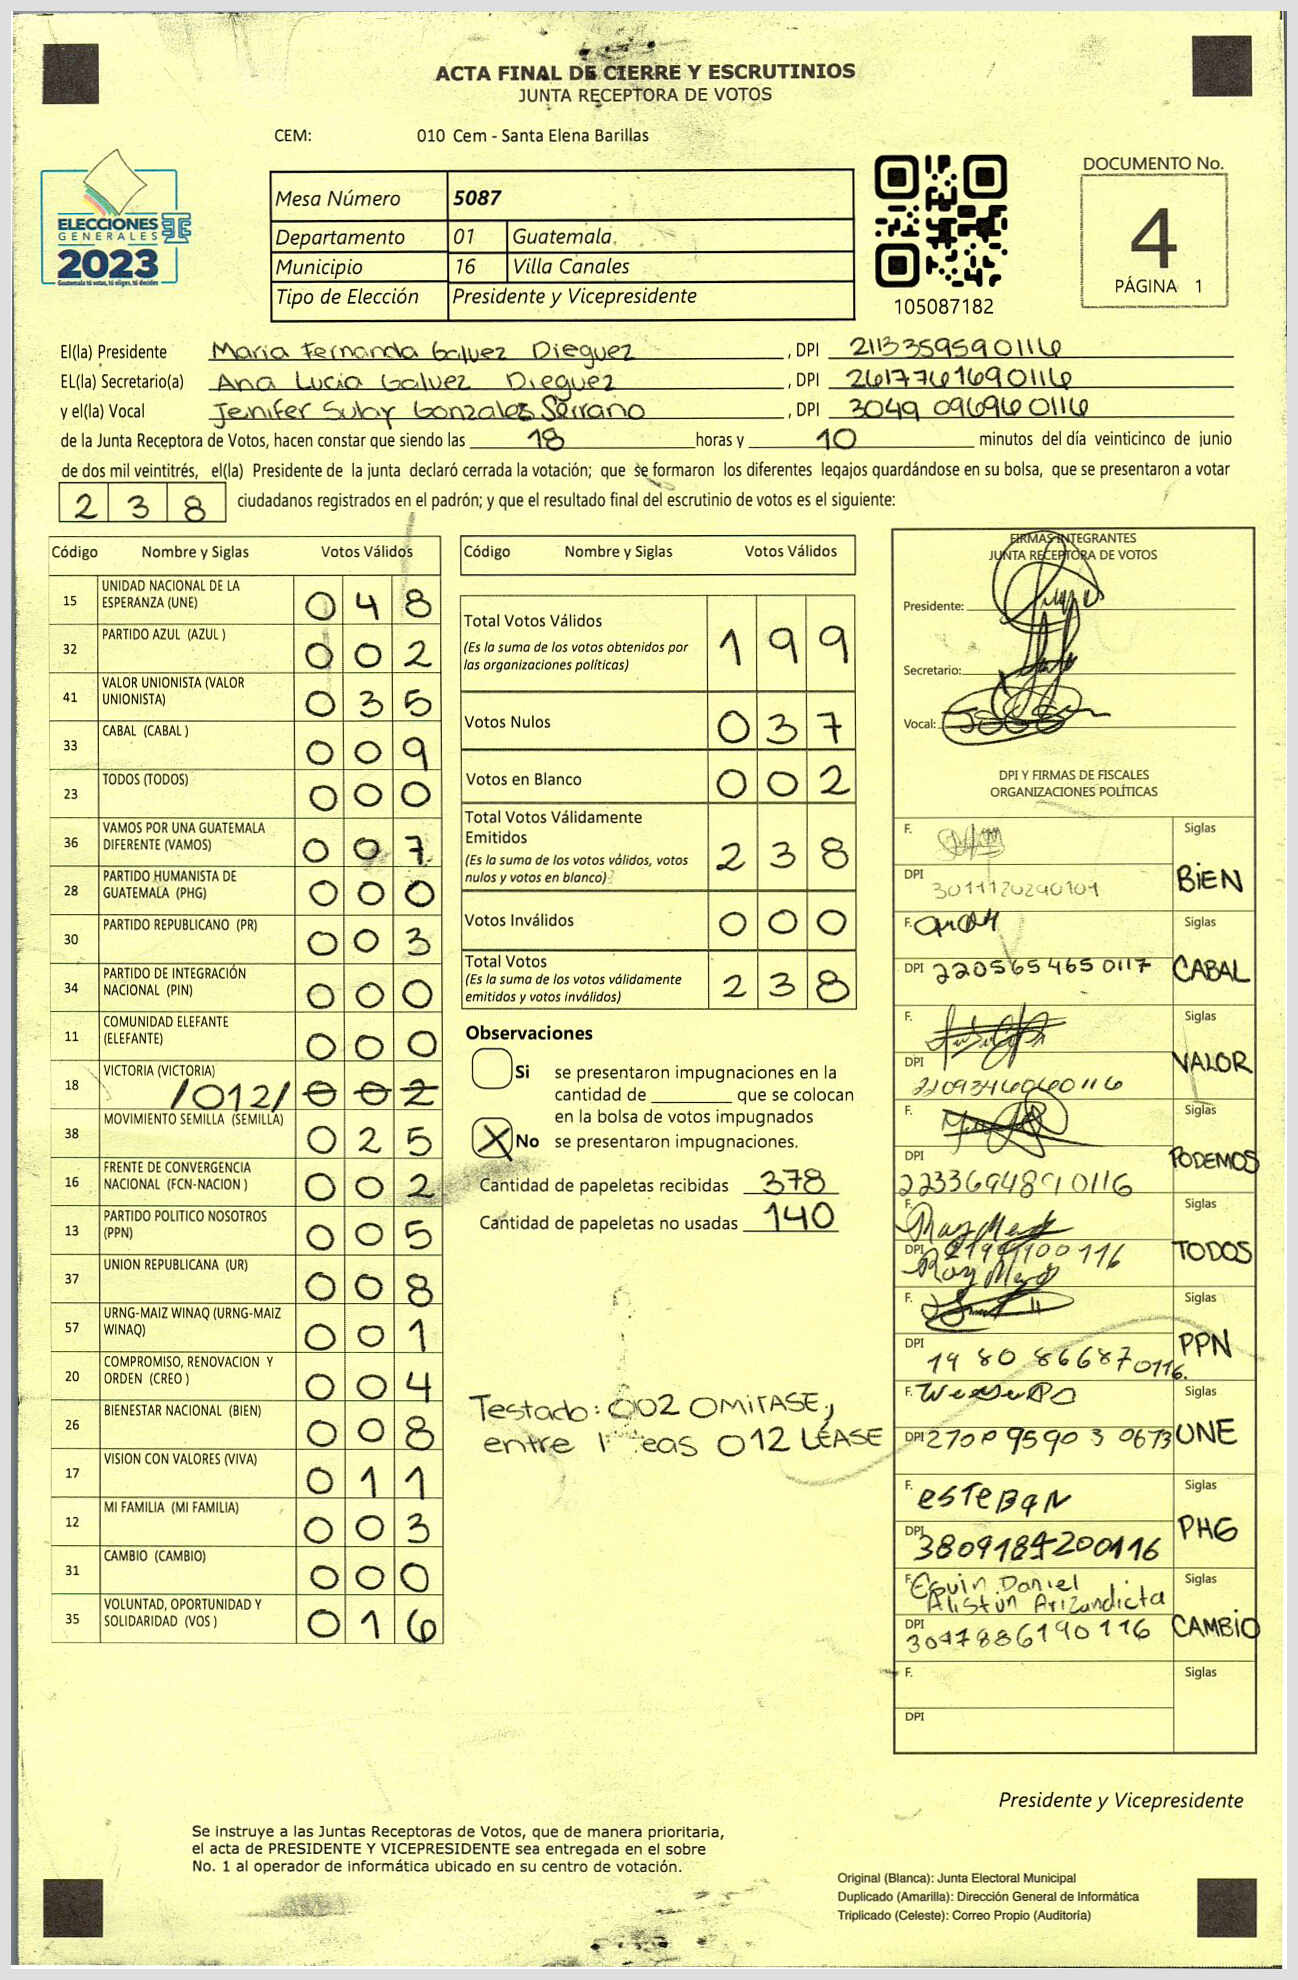 ACTA FINAL DE CIERRE Y ESCRUTINIOS
JUNTA RECEPTORA DE VOTOS
CEM: 010 Cem - Santa Elena Barillas
DOCUMENTO No.
4
PÁGINA 1
ELECCIONES
GENERALES
2023
Guatemala tú votas, tú eliges, tú decides
Mesa Número 5087
Departamento 01 Guatemala
Municipio 16 Villa Canales
Tipo de Elección Presidente y Vicepresidente
105087182
El(la) Presidente Maria Fernanda Galvez Dieguez, DPI 2113359590116
EL(la) Secretario(a) Ana Lucia Galvez Dieguez, DPI 2617761690116
y el(la) Vocal Jenifer Sulay Gonzales Serrano, DPI 3049 096960116
de la Junta Receptora de Votos, hacen constar que siendo las 18 horas y 10 minutos del día veinticinco de junio
de dos mil veintitrés, el(la) Presidente de la junta declaró cerrada la votación; que se formaron los diferentes legajos guardándose en su bolsa, que se presentaron a votar
238 ciudadanos registrados en el padrón; y que el resultado final del escrutinio de votos es el siguiente:
Código Nombre y Siglas Votos Válidos
15 UNIDAD NACIONAL DE LA ESPERANZA (UNE) 048
32 PARTIDO AZUL (AZUL ) 002
41 VALOR UNIONISTA (VALOR UNIONISTA) 035
33 CABAL (CABAL ) 009
23 TODOS (TODOS) 000
36 VAMOS POR UNA GUATEMALA DIFERENTE (VAMOS) 007
28 PARTIDO HUMANISTA DE GUATEMALA (PHG) 000
30 PARTIDO REPUBLICANO (PR) 003
34 PARTIDO DE INTEGRACIÓN NACIONAL (PIN) 000
11 COMUNIDAD ELEFANTE (ELEFANTE) 000
18 VICTORIA (VICTORIA) /012/ 002
38 MOVIMIENTO SEMILLA (SEMILLA) 025
16 FRENTE DE CONVERGENCIA NACIONAL (FCN-NACION ) 002
13 PARTIDO POLITICO NOSOTROS (PPN) 005
37 UNION REPUBLICANA (UR) 008
57 URNG-MAIZ WINAQ (URNG-MAIZ WINAQ) 001
20 COMPROMISO, RENOVACION Y ORDEN (CREO ) 004
26 BIENESTAR NACIONAL (BIEN) 008
17 VISION CON VALORES (VIVA) 011
12 MI FAMILIA (MI FAMILIA) 003
31 CAMBIO (CAMBIO) 000
35 VOLUNTAD, OPORTUNIDAD Y SOLIDARIDAD (VOS ) 016
Código Nombre y Siglas Votos Válidos
Total Votos Válidos 199
(Es la suma de los votos obtenidos por
las organizaciones políticas)
Votos Nulos 037
Votos en Blanco 002
Total Votos Válidamente
Emitidos 238
(Es la suma de los votos válidos, votos
nulos y votos en blanco)
Votos Inválidos 000
Total Votos 238
(Es la suma de los votos válidamente
emitidos y votos inválidos)
Observaciones
Si se presentaron impugnaciones en la
cantidad de ________ que se colocan
en la bolsa de votos impugnados
X No se presentaron impugnaciones.
Cantidad de papeletas recibidas 378
Cantidad de papeletas no usadas 140
Testado: 002 OMITASE,
entre 012 LÉASE
FIRMAS INTEGRANTES
JUNTA RECEPTORA DE VOTOS
Presidente:
Secretario:
Vocal:
DPI Y FIRMAS DE FISCALES
ORGANIZACIONES POLÍTICAS
F. Siglas
DPI 3011120240101 BIEN
F. Siglas
DPI 2205654650117 CABAL
F. Siglas
DPI 2109346060116 VALOR
F. Siglas
DPI 2233694890116 PODEMOS
F. Siglas
DPI TODOS
F. Siglas
DPI 1980 866870116. PPN
F. Siglas
DPI 2700 95903 0673 UNE
F. ESTEBAN Siglas
DPI 3809184200116 PHG
F. Daniel Siglas
DPI 3047886190116 CAMBIO
F. Siglas
DPI
Presidente y Vicepresidente
Se instruye a las Juntas Receptoras de Votos, que de manera prioritaria,
el acta de PRESIDENTE Y VICEPRESIDENTE sea entregada en el sobre
No. 1 al operador de informática ubicado en su centro de votación.
Original (Blanca): Junta Electoral Municipal
Duplicado (Amarilla): Dirección General de Informática
Triplicado (Celeste): Correo Propio (Auditoría)